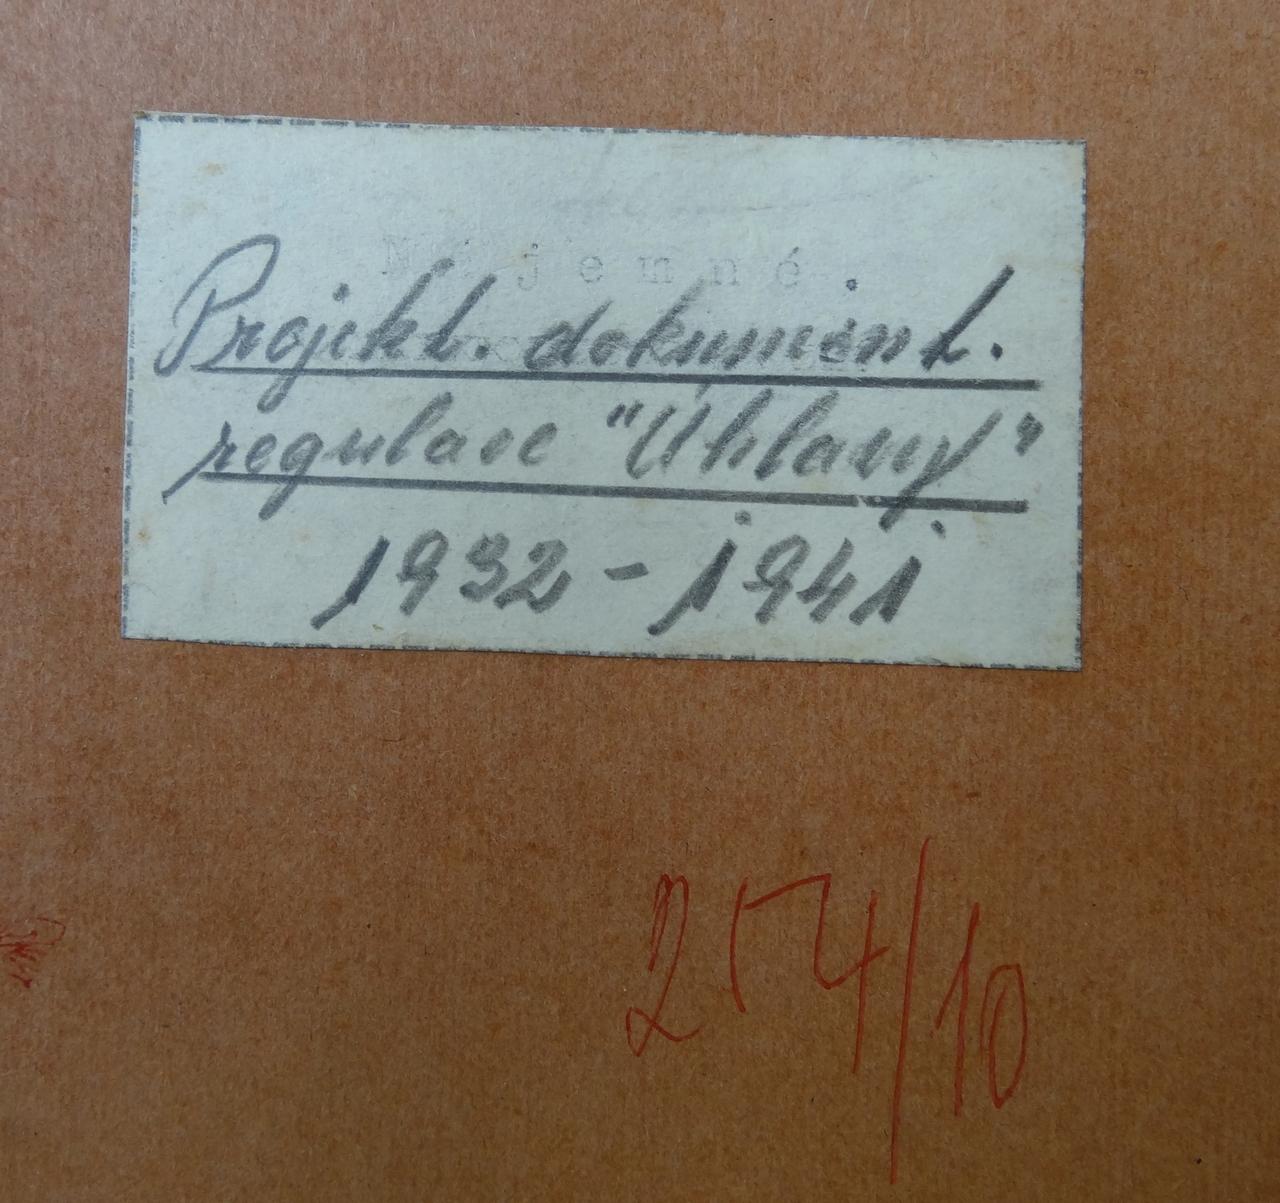 Projekt. dokument.
regulace "Úhlavy"
1932 - 1941
254/10